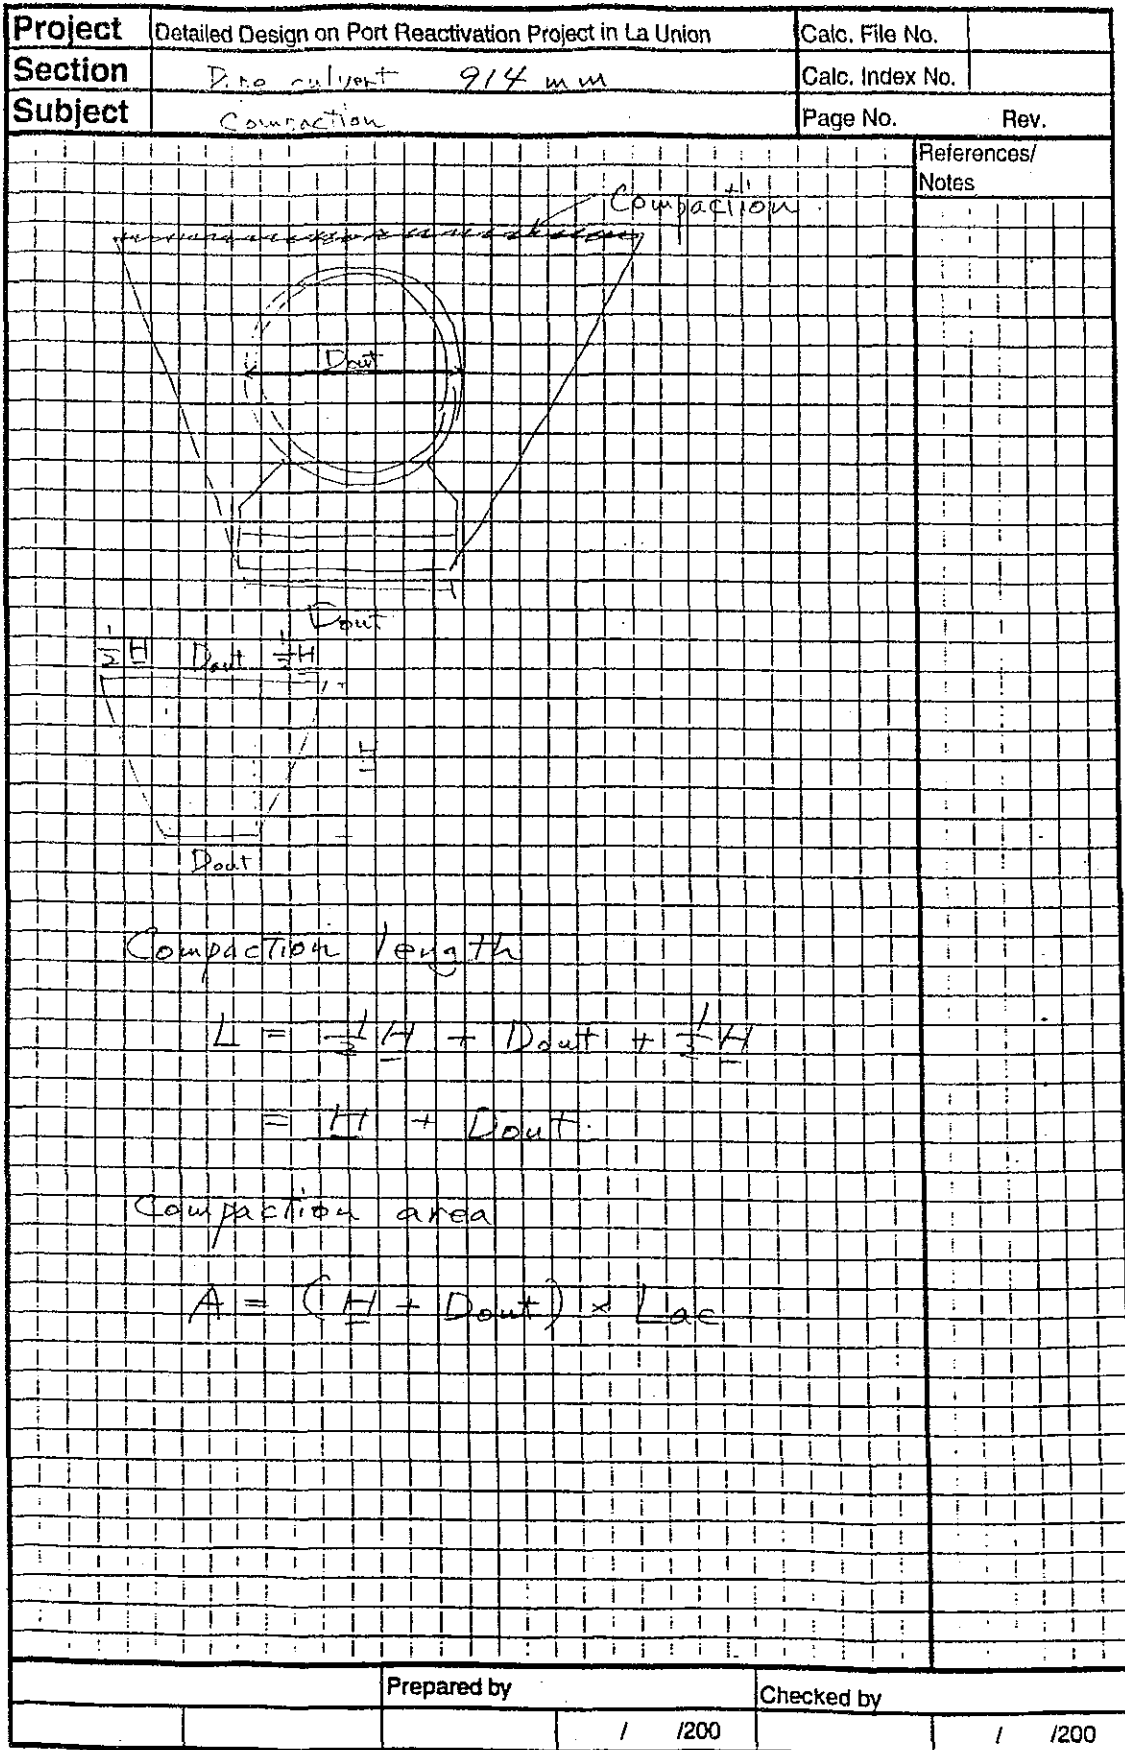 Project Detailed Design on Port Reactivation Project in La Union Calc. File No.
Section Pipe culvert 914 mm Calc. Index No.
Subject Compaction Page No. Rev.
References/
Notes
Compaction
Dout
Dout
½H Dout ½H
H
Dout
Compaction length
L = ½H + Dout + ½H
= H + Dout
Compaction area
A = (H + Dout) × Lac
Prepared by Checked by
/ /200 / /200